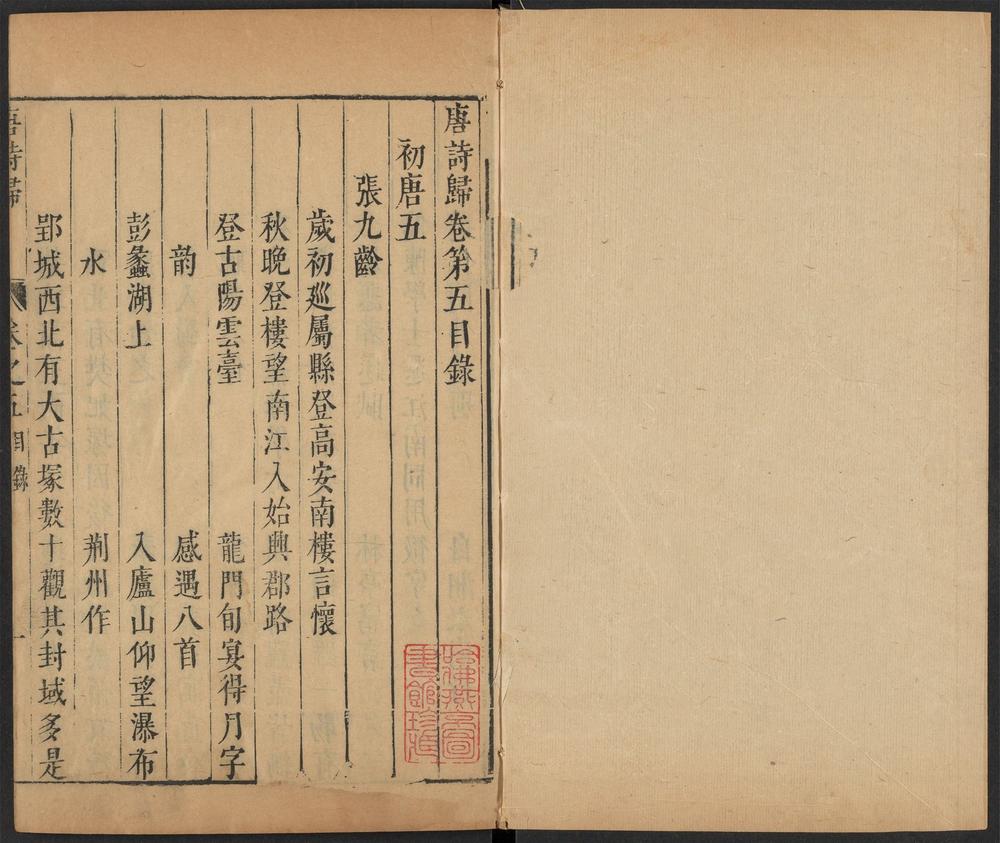 唐詩歸卷第五目錄
初唐五
張九齡
歲初巡屬縣登高安南樓言懷
秋晚登樓望南江入始興郡路
登古陽雲臺　龍門旬宴得月字
韵　感遇八首
彭蠡湖上　入廬山仰望瀑布
水　荆州作
郢城西北有大古塚數十觀其封域多是
唐詩歸　卷之五目錄　一
哈佛燕京圖書館珍藏